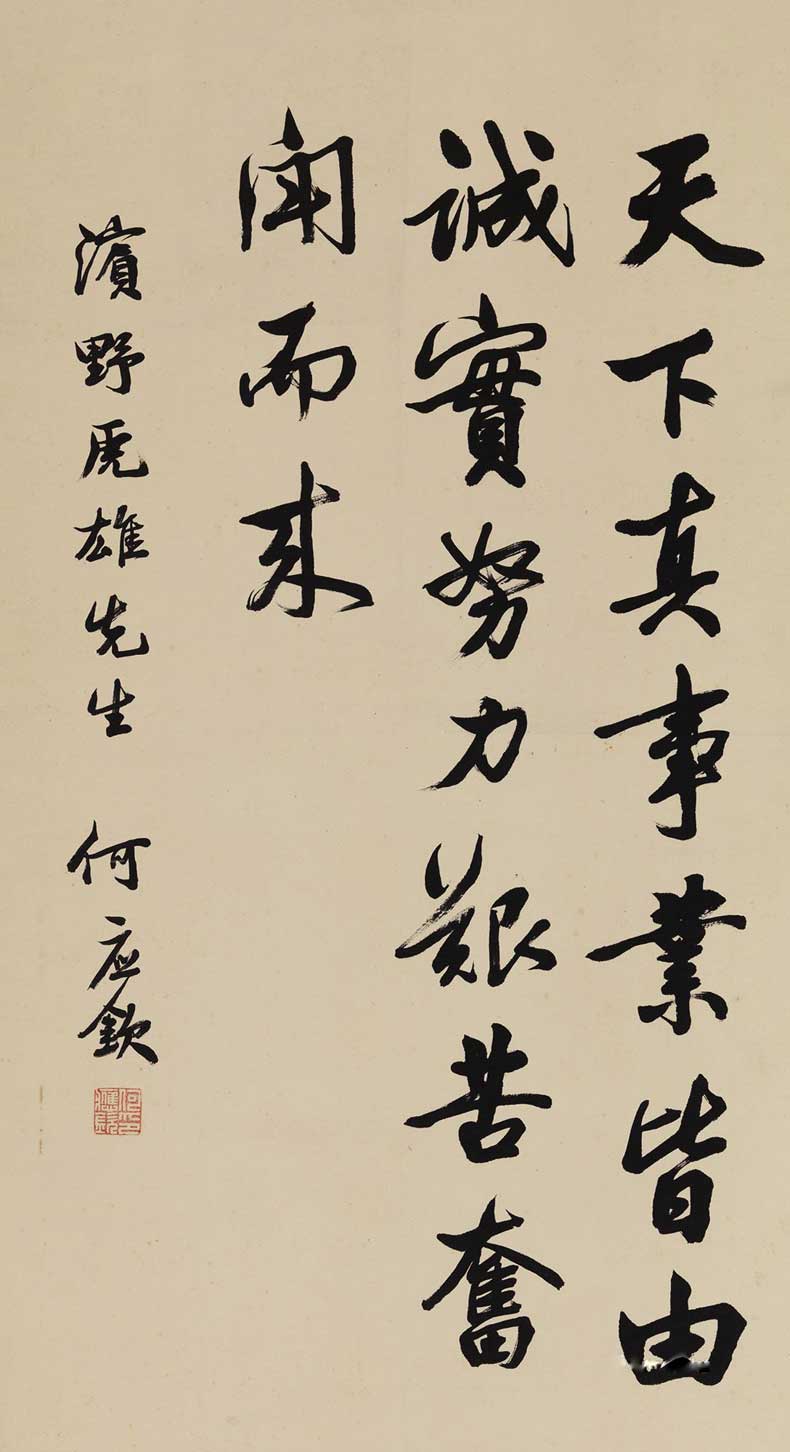 天下真事業皆由
誠實努力艱苦奮
鬥而来
濱野虎雄先生 何应欽
何應欽印